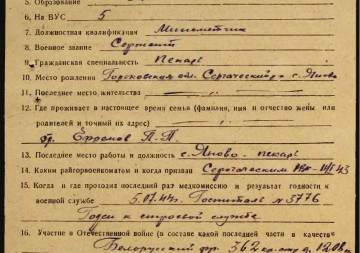 5. Образование
6. На ВУС 5
7. Должностная квалификация Минометчик
8. Военное звание Сержант
9. Гражданская специальность Пекарь
10. Место рождения Горьковская обл. Сергачский р. с. Яново
11. Последнее место жительства
12. Где проживает в настоящее время семья (фамилия, имя и отчество жены или
родителей и точный их адрес)
бр. Ефремов П.П.
13. Последнее место работы и должность с. Яново - пекарь
14. Каким райгорвоенкоматом и когда призван Сергачским РВК
15. Когда и где проходил последний раз медкомиссию и результат годности к
военной службе 5.07.44г. Госпиталь № 5776
Годен к строевой службе
16. Участие в Отечественной войне (в составе какой последней части в качестве
Белорусский фр. 362